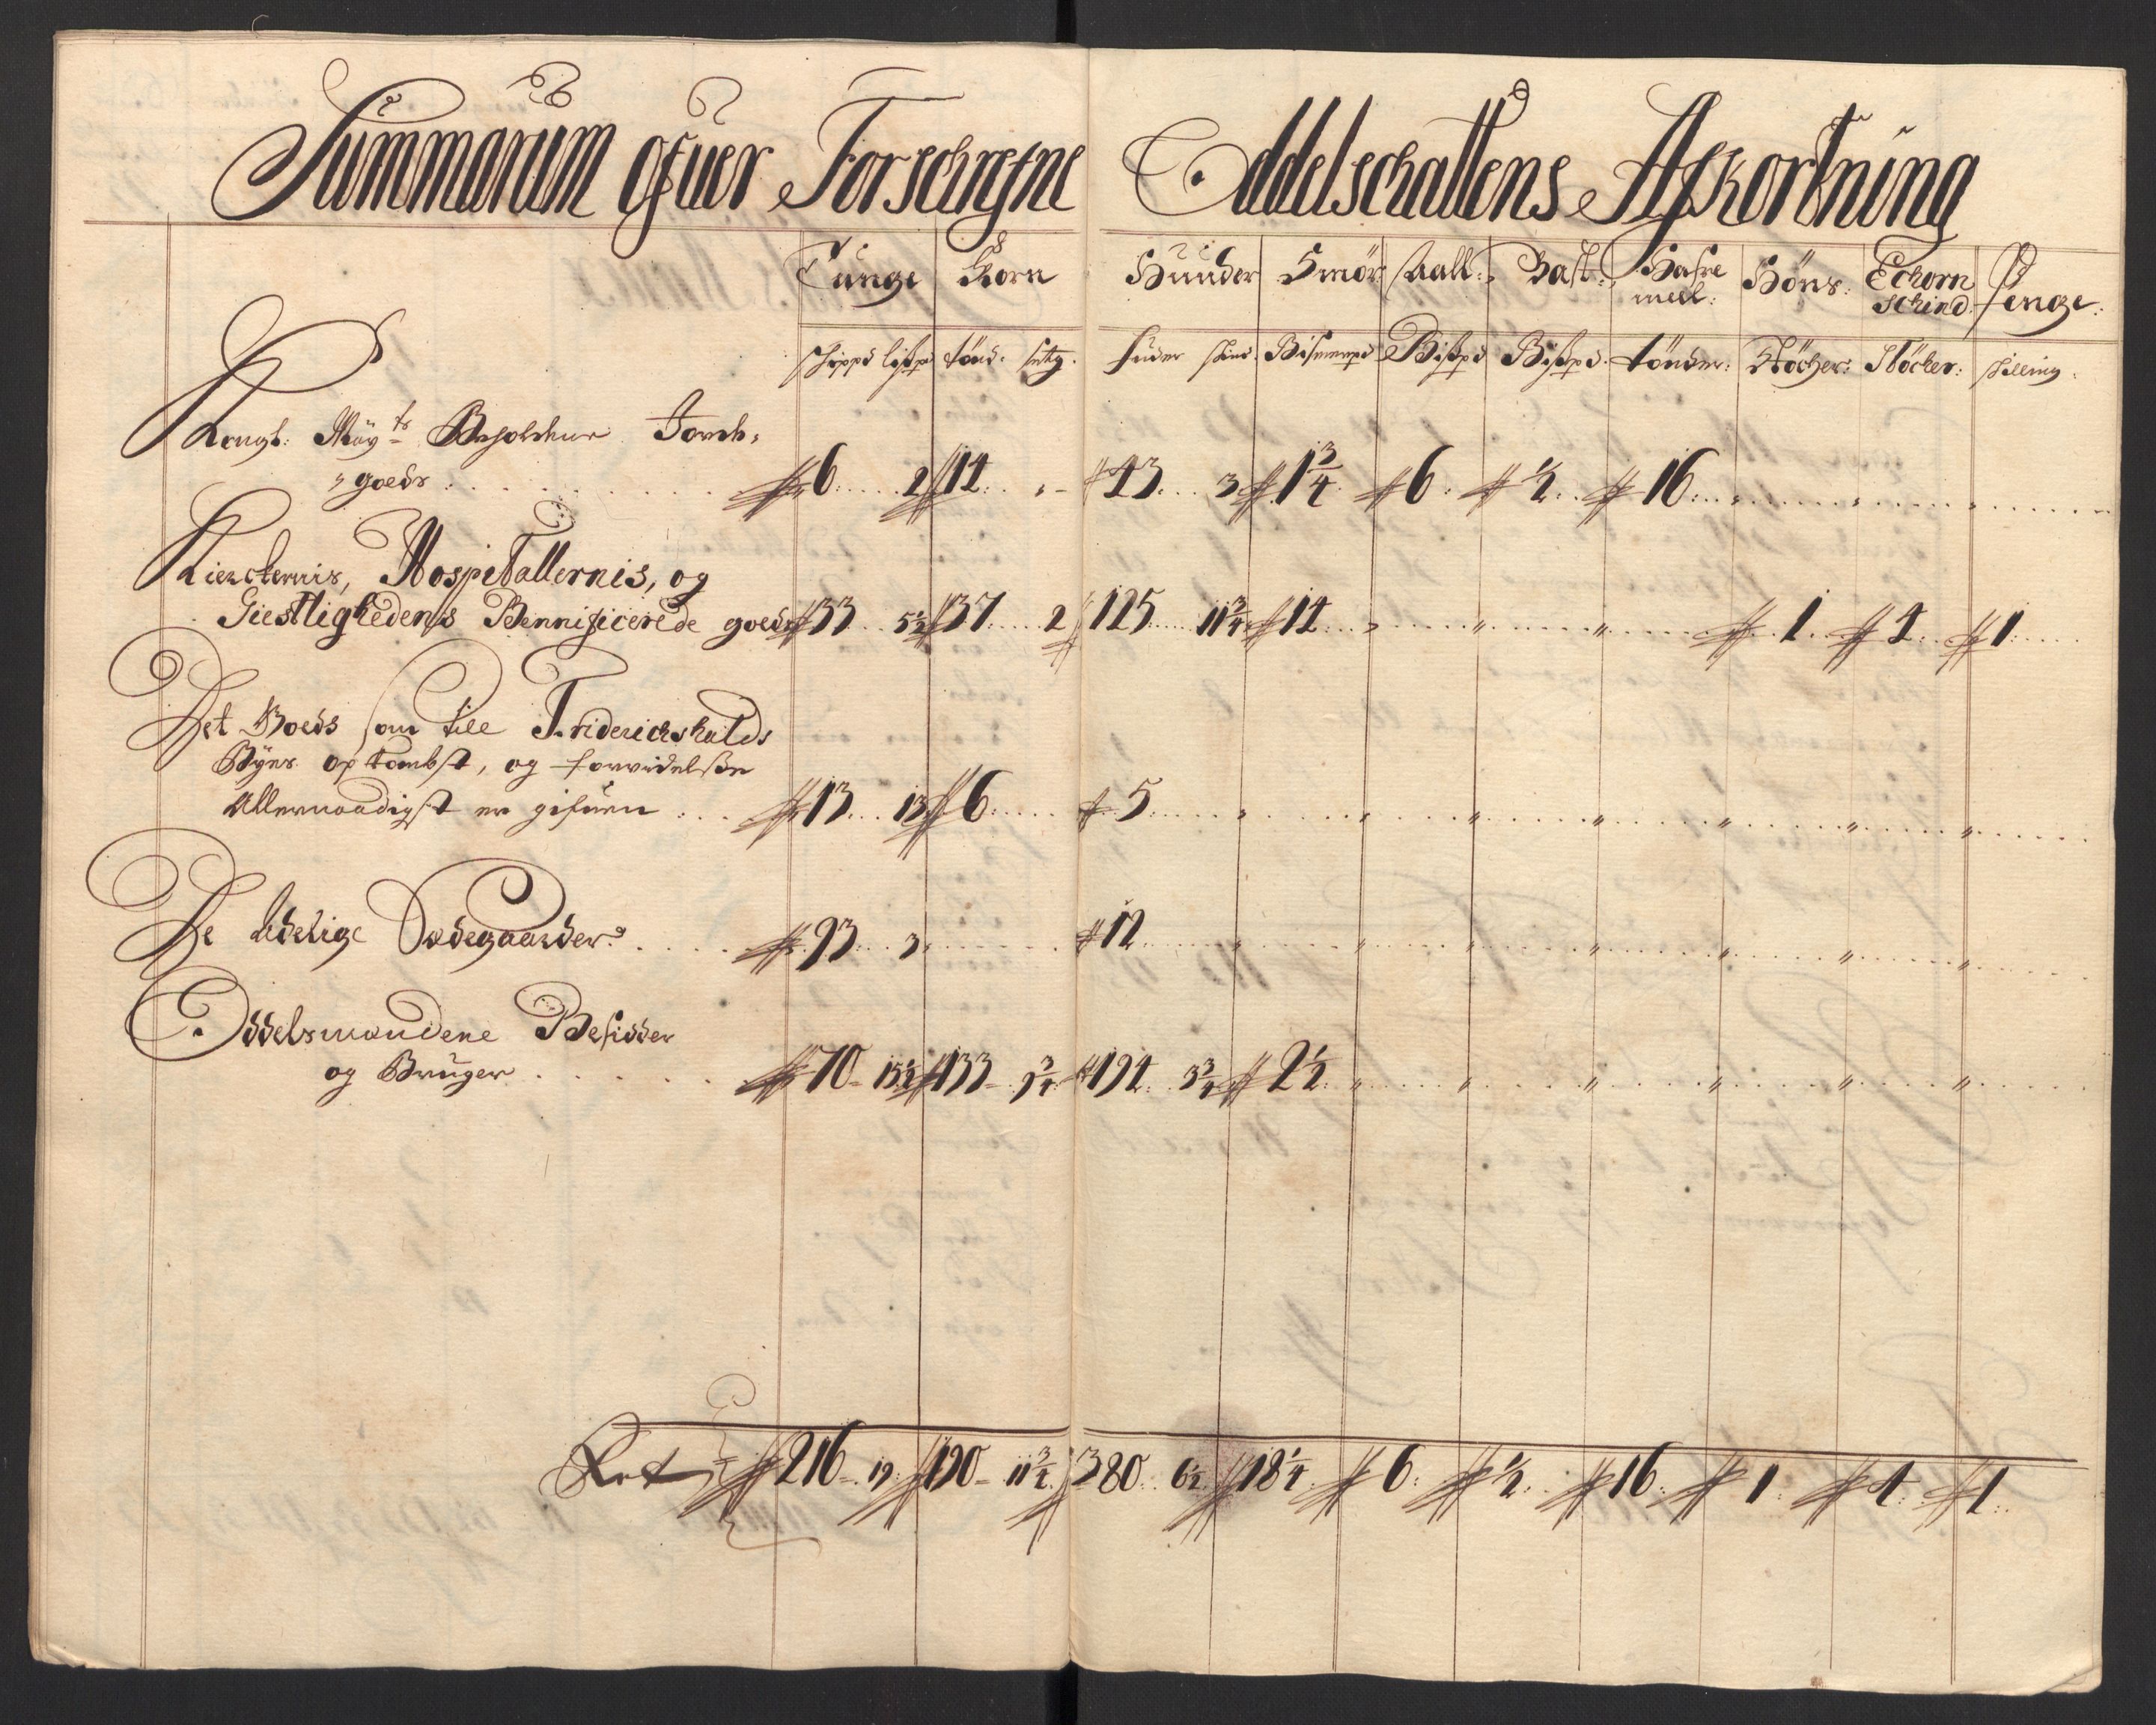 Summarum ofuer Forschrefne Oddelschattens Afkortning
Tunge Korn Huuder Smör Aall: Bast: Hafre Höns: Echorn Penge:
meel: schind:
schippd lispd tönd: setg. huder skind Bismerpd Bispd Bispd. tönder: Stöcher: Stöcker: skilling.
Kongl: Mayts Beholdene Jorde,
goeds . . . 6 2 14 „ 43 3 1¾ 6 ½ 16 „ „ „
Kierckernis, Hospitallernis, og
Giestlighedens Bennificerede goeds 33 5½ 37 2 125 11¾ 14 „ „ „ 1 4 1
Det Goeds som till Friderichshalds
Byes optombst, og forvidelsse
Allernaadigst er gifuen . . . 13 13 6 5 „ „ „ „ „ „
De Adelige Sædegaarder . . . 93 3 12 „ „ „ „ „ „ „
Oddelsmændene Besidder
og Bruger . . . 70 15½ 133 9¾ 194 3¾ 2½ „ „ „ „ „ „
216 19 190 11¾ 380 6½ 18¼ 6 ½ 16 1 4 1